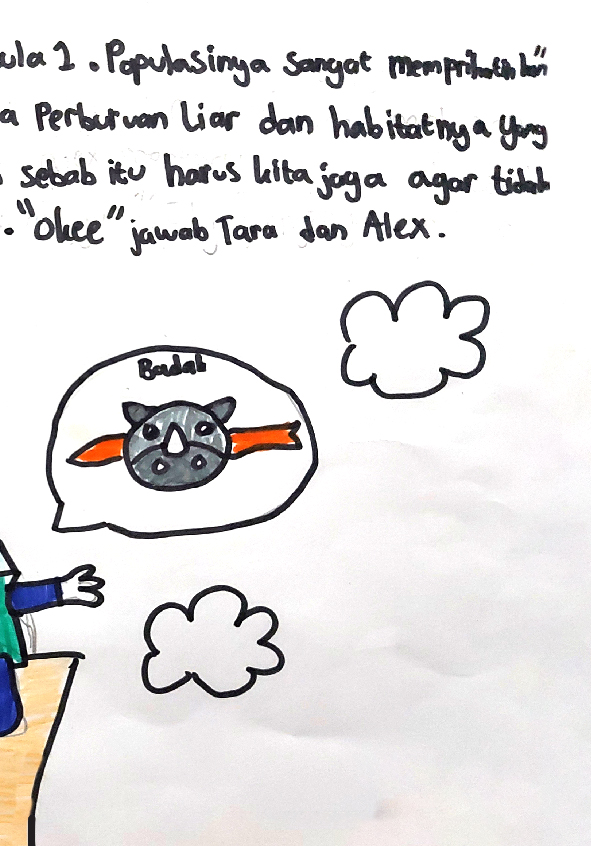 ula 1. Populasinya sangat memprihatinkan"
a Perburuan Liar dan habitatnya yang
sebab itu harus kita jaga agar tidak
."okee" jawab Tara dan Alex.
Badak